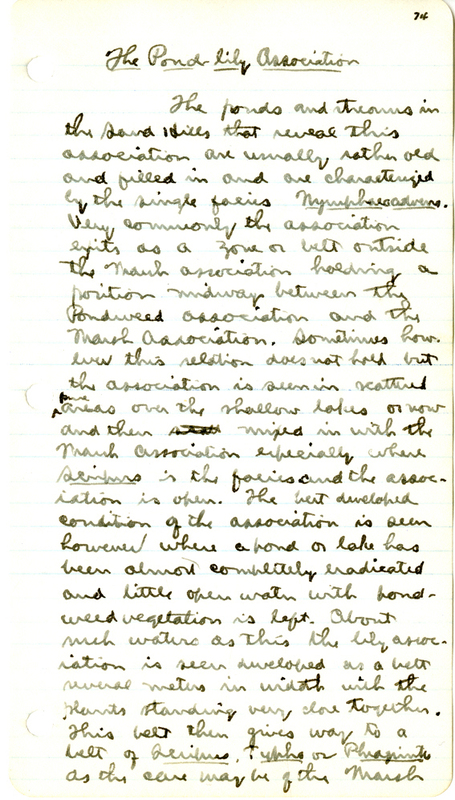 74
The Pond-lily Association
The ponds and streams in
the Sand Hills that reveal this
association are usually rather old
and filled in and are characterized
by the single facies Nymphaea advena.
Very commonly the association
exits as a zone or belt outside
the Marsh association holding a
position midway between the
Pondweed association and the
Marsh Association. Sometimes how-
ever this relation does not hold but
the association is seen in scattered
pure areas over the shallow lakes or now
and then mixed in with the
Marsh Association especially where
Scirpus is the facies and the assoc-
iation is open. The best developed
condition of the association is seen
however where a pond or lake has
been almost completely eradicated
and little open water with pond-
weed vegetation is left. About
such waters as this the lily assoc-
iation is seen developed as a belt
several meters in width with the
plants standing very close together.
This belt then gives way to a
belt of Scirpus, Typha or Phragmites
as the case may be of the Marsh